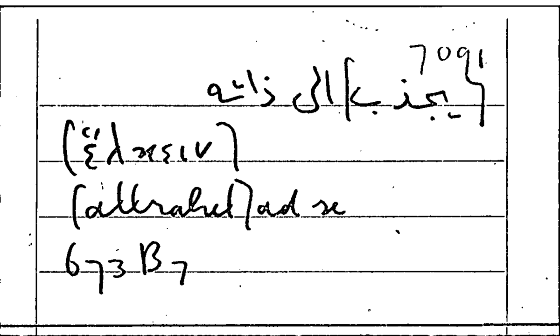 7091
[يجذب] الى ذاته
[ἕλκειν]
[attrahet] ad se
673 B 7